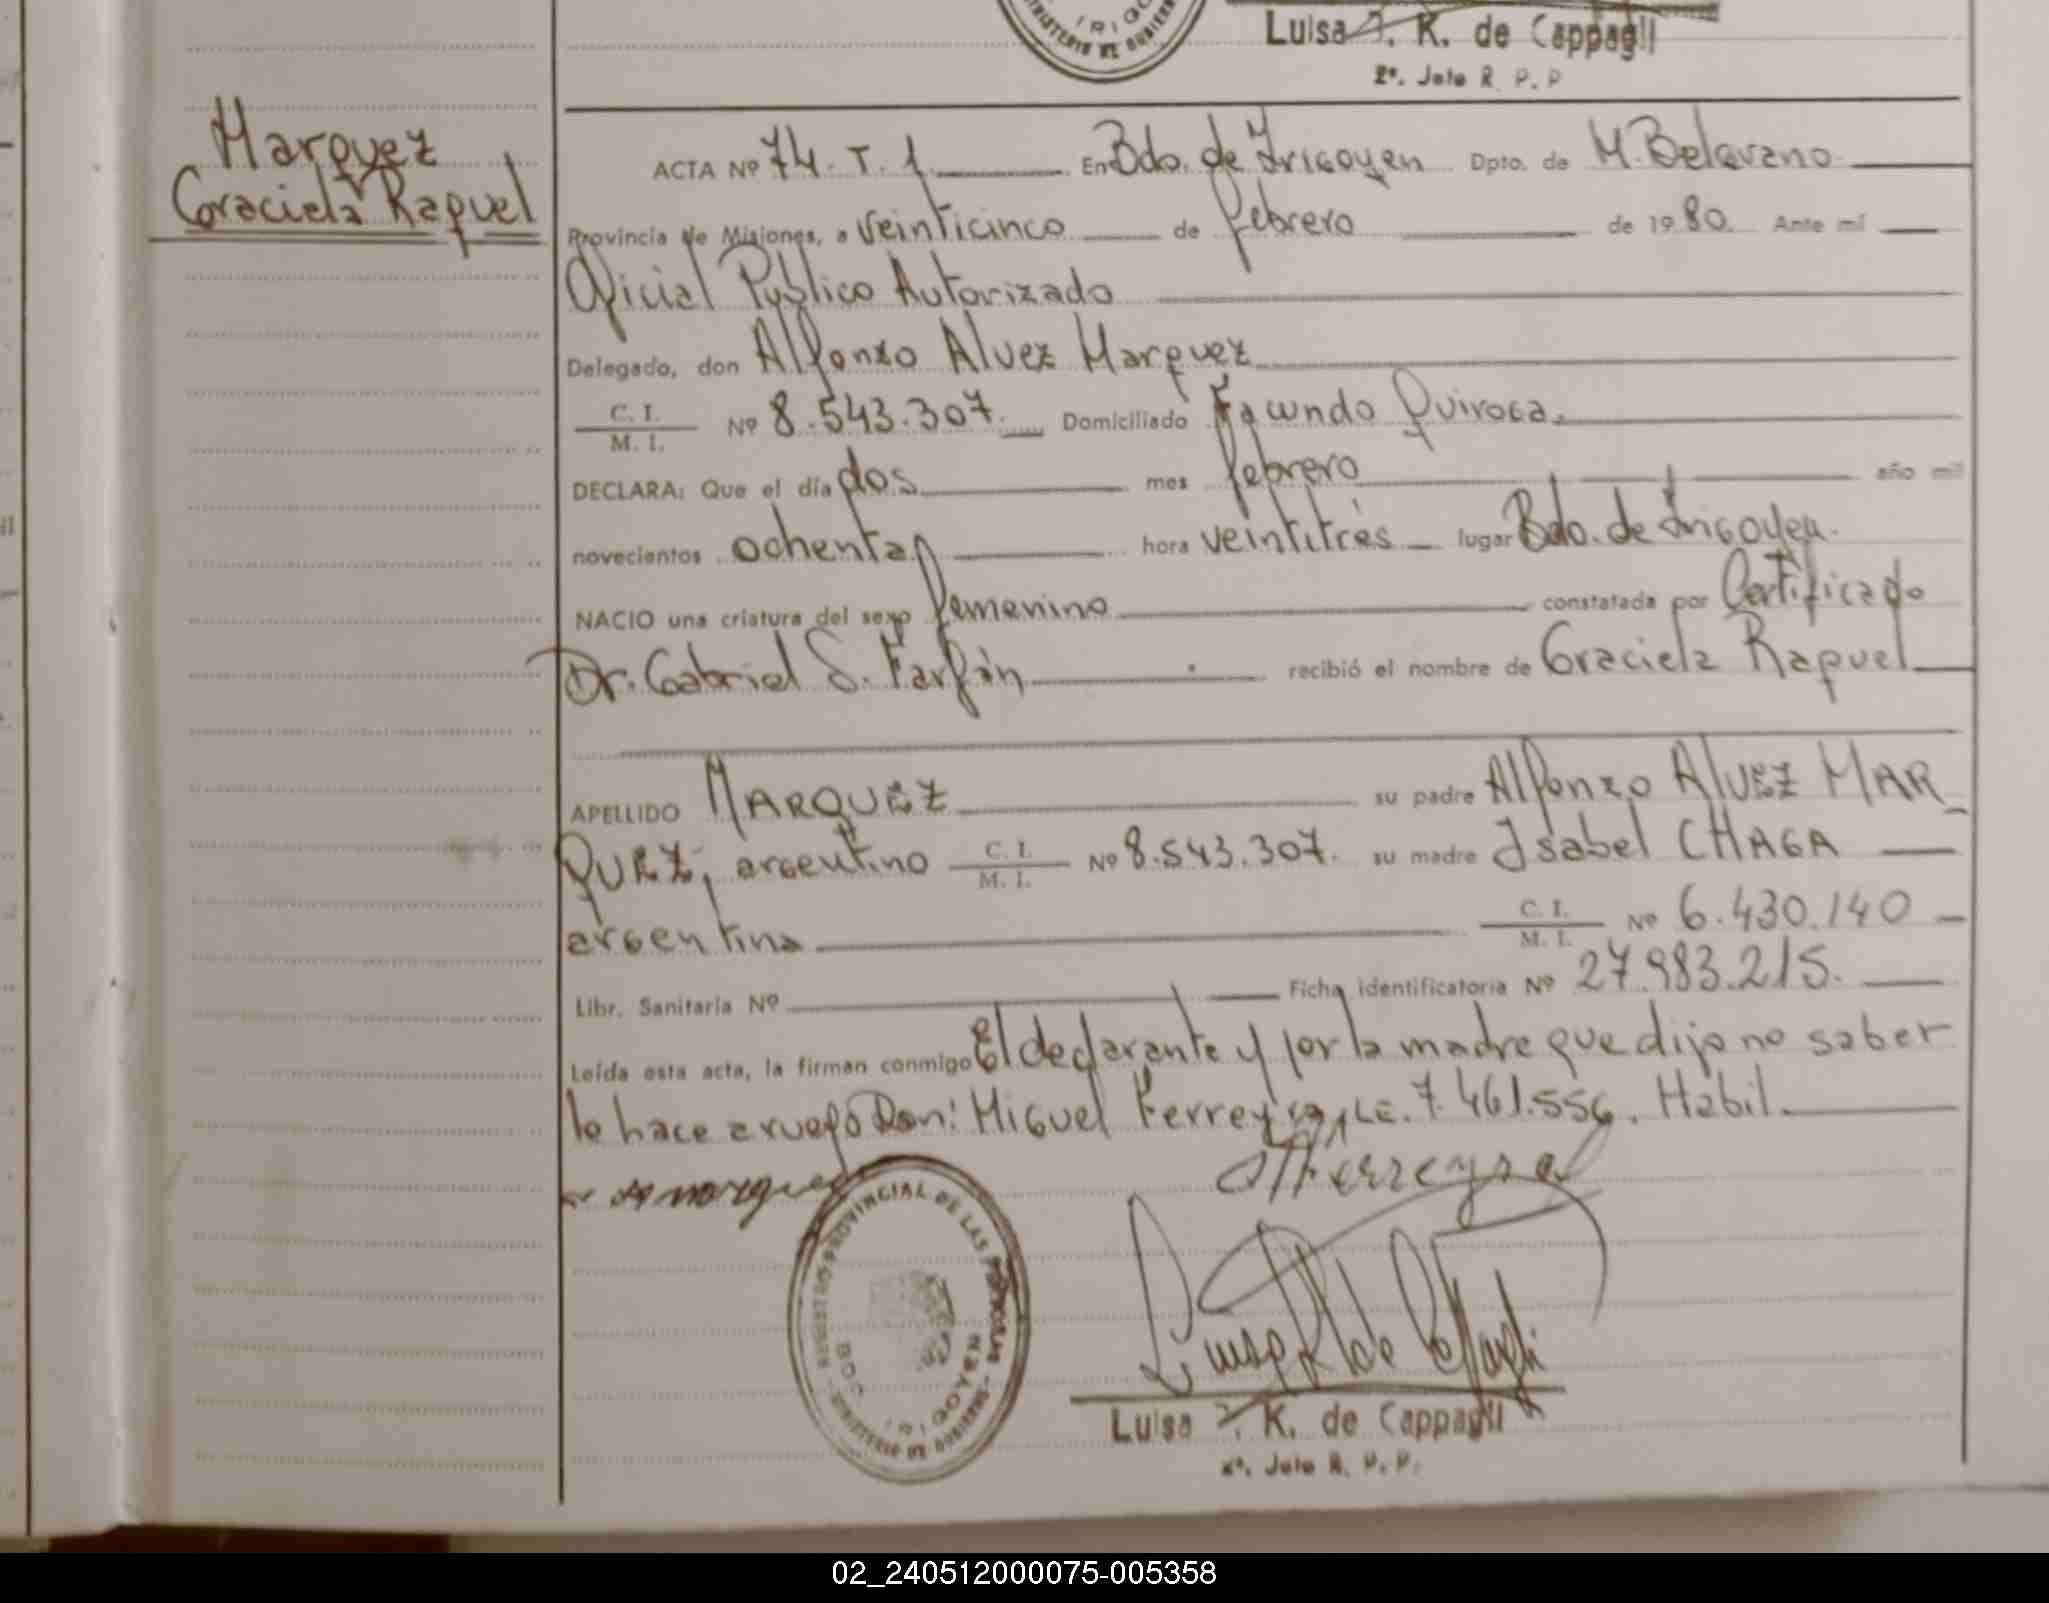 Luisa J. K. de Cappagli
2º. Jefe R. P. P
Marquez
Graciela Raquel
ACTA Nº 74. T. 1 En Bdo. de Irigoyen Dpto. de M. Belgrano
Provincia de Misiones, a veinticinco de febrero de 1980. Ante mí
Oficial Público Autorizado
Delegado, don Alfonzo Alvez Marquez
C. I. / M. I. Nº 8.543.307. Domiciliado Facundo Quiroga.
DECLARA: Que el día dos mes febrero año mil
novecientos ochenta hora veintitrés lugar Bdo. de Irigoyen.
NACIO una criatura del sexo femenino constatada por Certificado
Dr. Gabriel S. Farfán recibió el nombre de Graciela Raquel
APELLIDO MARQUEZ su padre Alfonzo ALVEZ MAR_
QUEZ, argentino C. I. / M. I. Nº 8.543.307. su madre Isabel CHAGA
argentina C. I. / M. I. Nº 6.430.140
Libr. Sanitaria Nº Ficha identificatoria Nº 27.983.215.
Leída esta acta, la firman conmigo El declarante y por la madre que dijo no saber
lo hace a ruego Don: Miguel Ferreyra, LE. 7.461.556. Hábil.
MFerreyra
REGISTRO PROVINCIAL DE LAS PERSONAS - MINISTERIO DE GOBIERNO
BDO. IRIGOYEN
Luisa J. K. de Cappagli
2º. Jefe R. P. P.
02_240512000075-005358